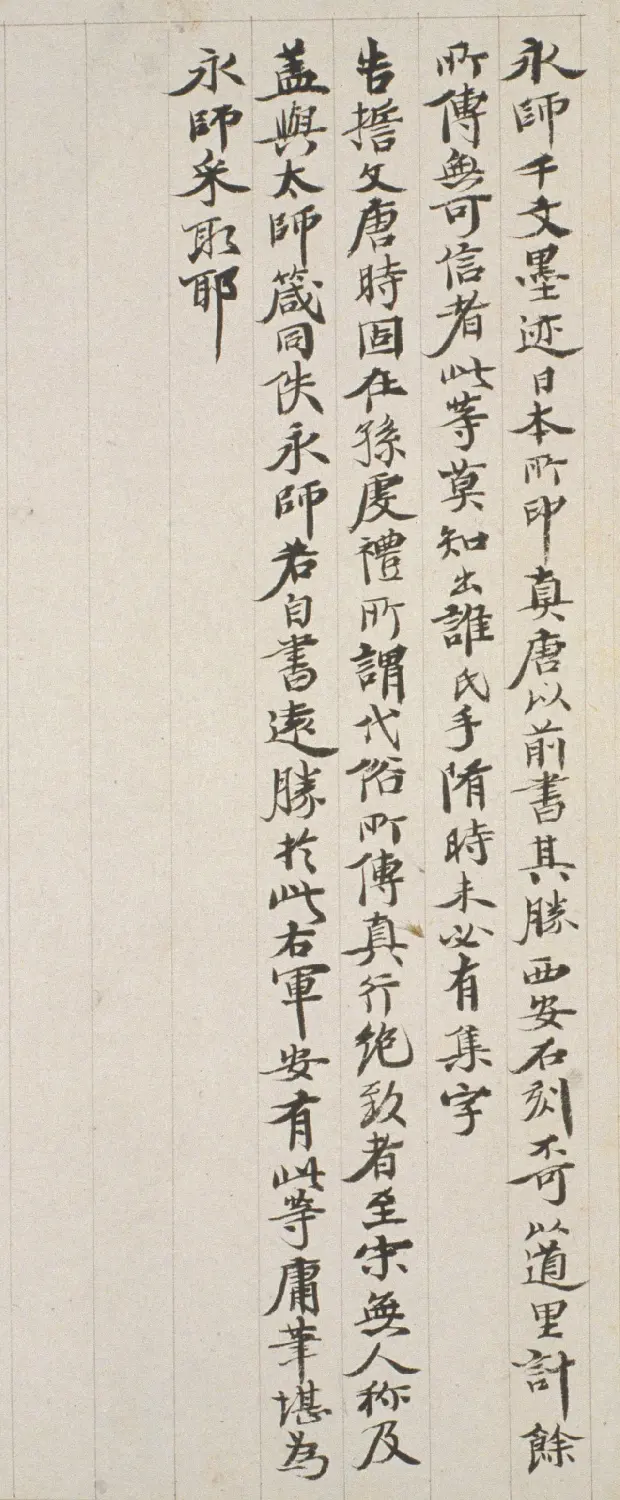 永師千文墨迹日本所印真唐以前書其勝西安石刻不可以道里計餘
所傳無可信者此等莫知出誰氏手隋時未必有集字
告誓文唐時固在孫虔禮所謂代俗所傳真行絶致者至宋無人称及
蓋與太師箴同佚永師若自書遠勝於此右軍安有此等庸筆堪為
永師采取耶